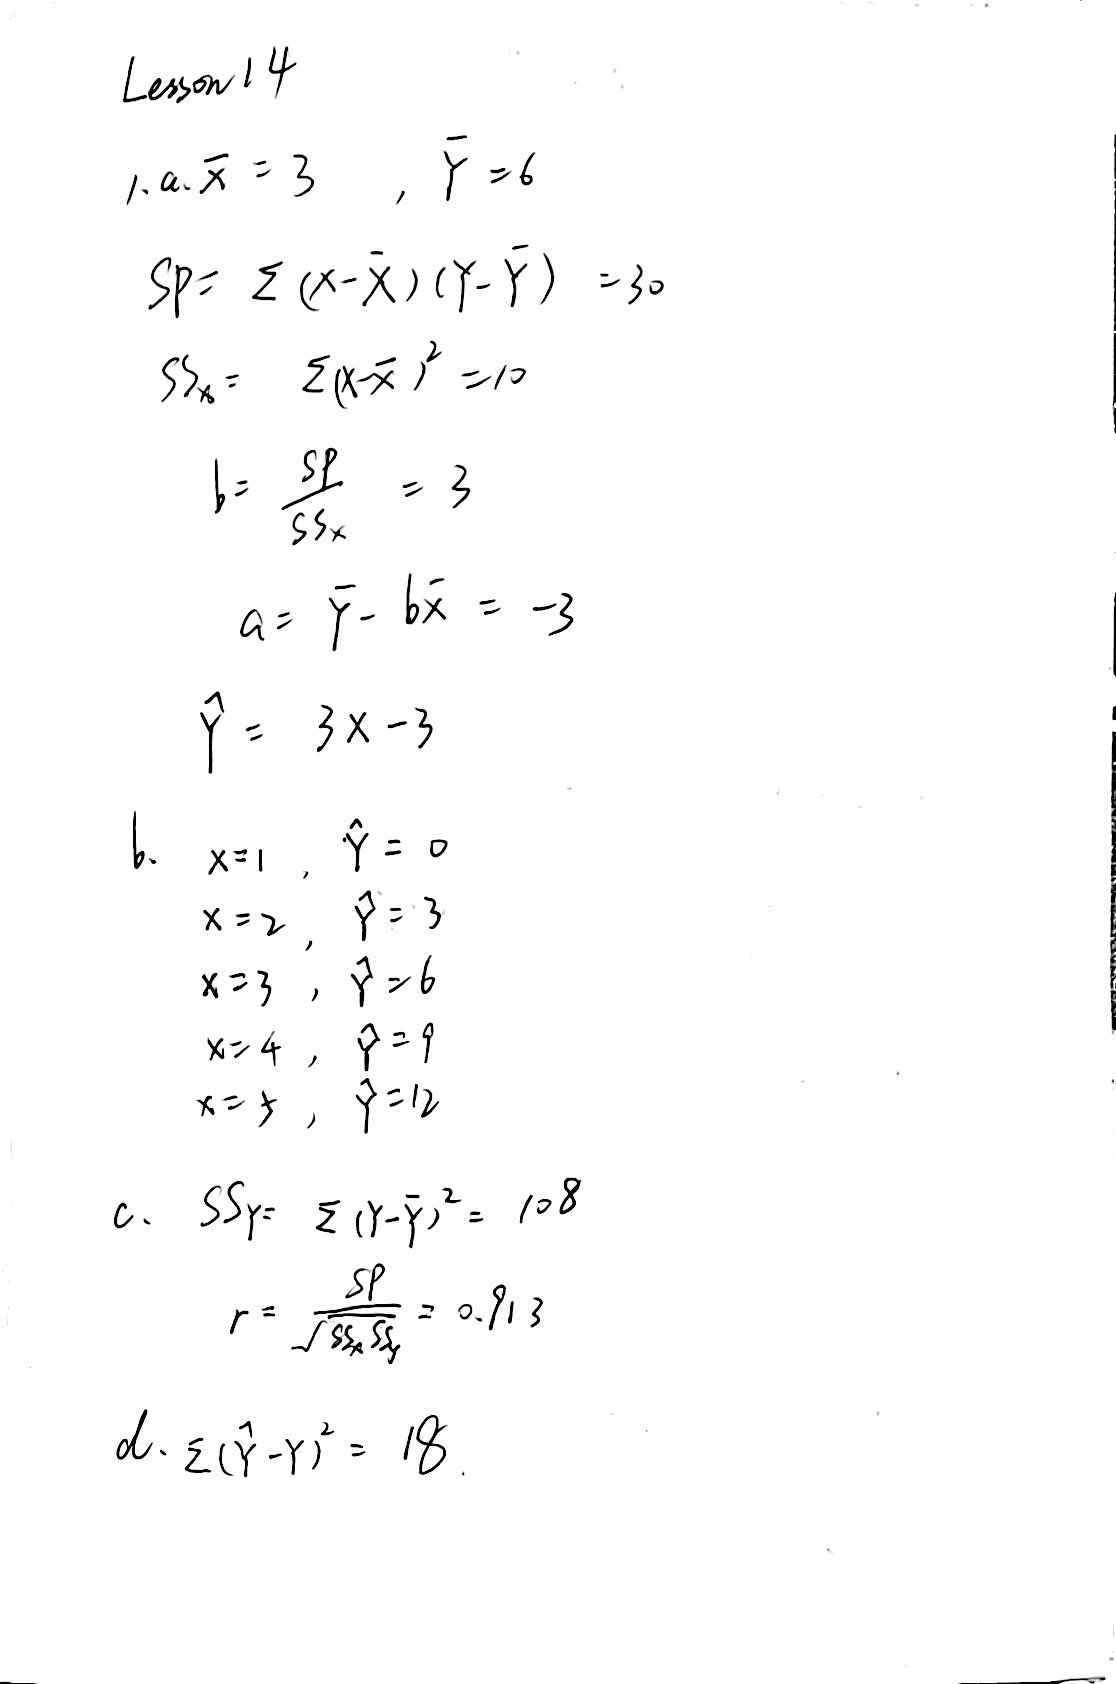 Lesson 14
1. a. x̄ = 3 , Ȳ = 6
SP = Σ (x-x̄) (Y-Ȳ) = 30
SSx = Σ(x-x̄)² = 10
b = SP/SSx = 3
a = Ȳ - bx̄ = -3
Ŷ = 3x - 3
b. x=1 , Ŷ = 0
x=2 , Ŷ = 3
x=3 , Ŷ = 6
x=4 , Ŷ = 9
x=5 , Ŷ = 12
c. SSY = Σ (Y-Ȳ)² = 108
r = SP/√SSx SSy = 0.913
d. Σ(Ŷ-Y)² = 18.